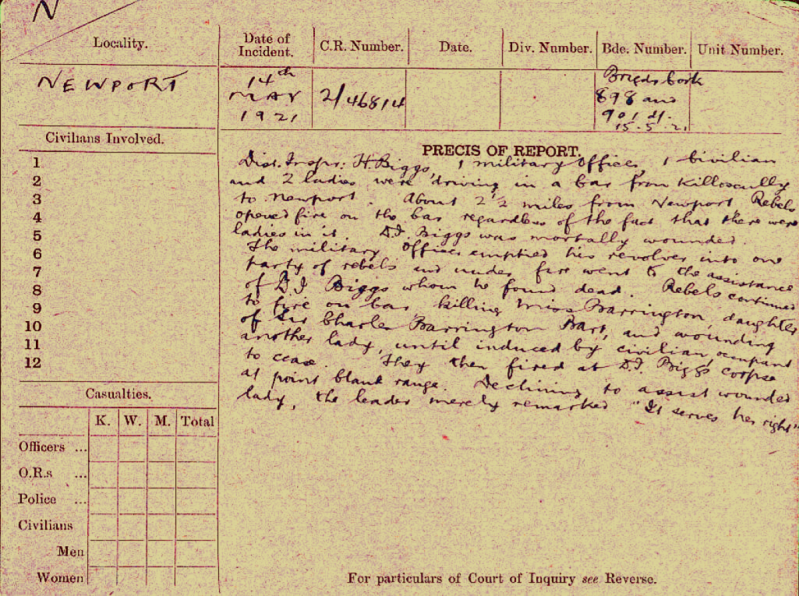 N
Locality. Date of Incident. C.R. Number. Date. Div. Number. Bde. Number. Unit Number.
NEWPORT 14th MAY 1921 2/46814 898 and 901 d/. 15.5.21
Civilians Involved.
1
2
3
4
5
6
7
8
9
10
11
12
PRECIS OF REPORT.
Dist. Inspr: H. Biggs, 1 military Officer, 1 Civilian
and 2 ladies were driving in a Car from Killoscully
to Newport. About 2½ miles from Newport Rebels
opened fire on the Car regardless of the fact that there were
ladies in it. D.I. Biggs was mortally wounded.
The military Officer emptied his revolver into one
party of rebels and under fire went to the assistance
of D.I. Biggs whom he found dead. Rebels continued
to fire on Car, killing Miss Barrington, daughter
of Sir Charles Barrington Bart, and wounding
another lady, until induced by civilian occupant
to cease. They then fired at D.I. Biggs corpse
at point blank range. Declining to assist wounded
lady, the leader merely remarked "It serves her right"
Casualties.
K. W. M. Total
Officers ...
O.R.s ...
Police ...
Civilians
Men
Women
For particulars of Court of Inquiry see Reverse.